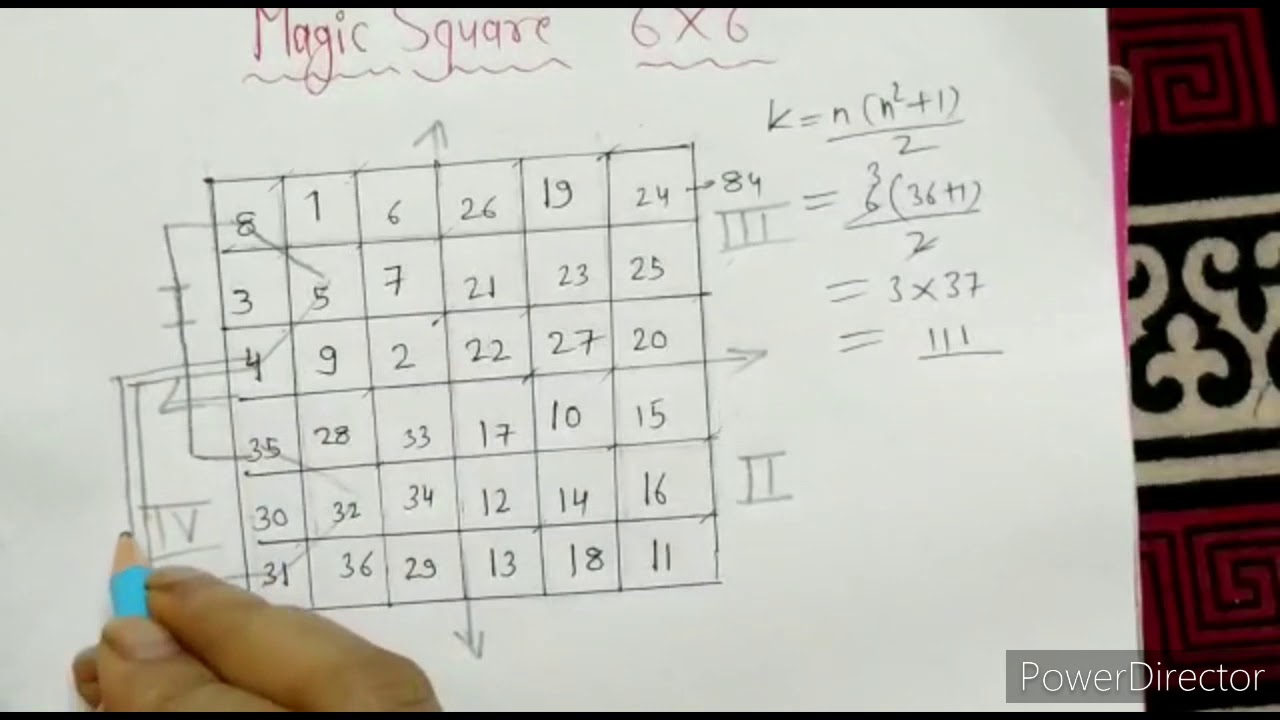 Magic Square 6×6
K = n(n²+1)/2
8 1 6 26 19 24 → 84
III = 3 6(36+1)/2
3 5 7 21 23 25
= 3×37
4 9 2 22 27 20
= 111
35 28 33 17 10 15
II
30 32 34 12 14 16
IV
31 36 29 13 18 11
PowerDirector